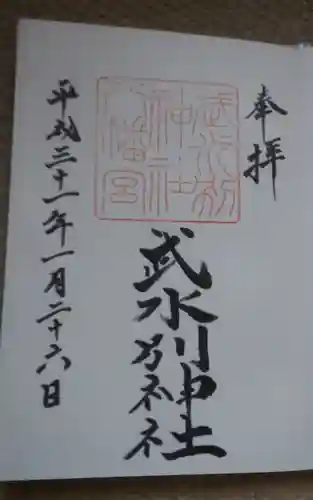 奉拝
武水別神社
武水別
神社
八幡宮
平成三十一年一月二十六日